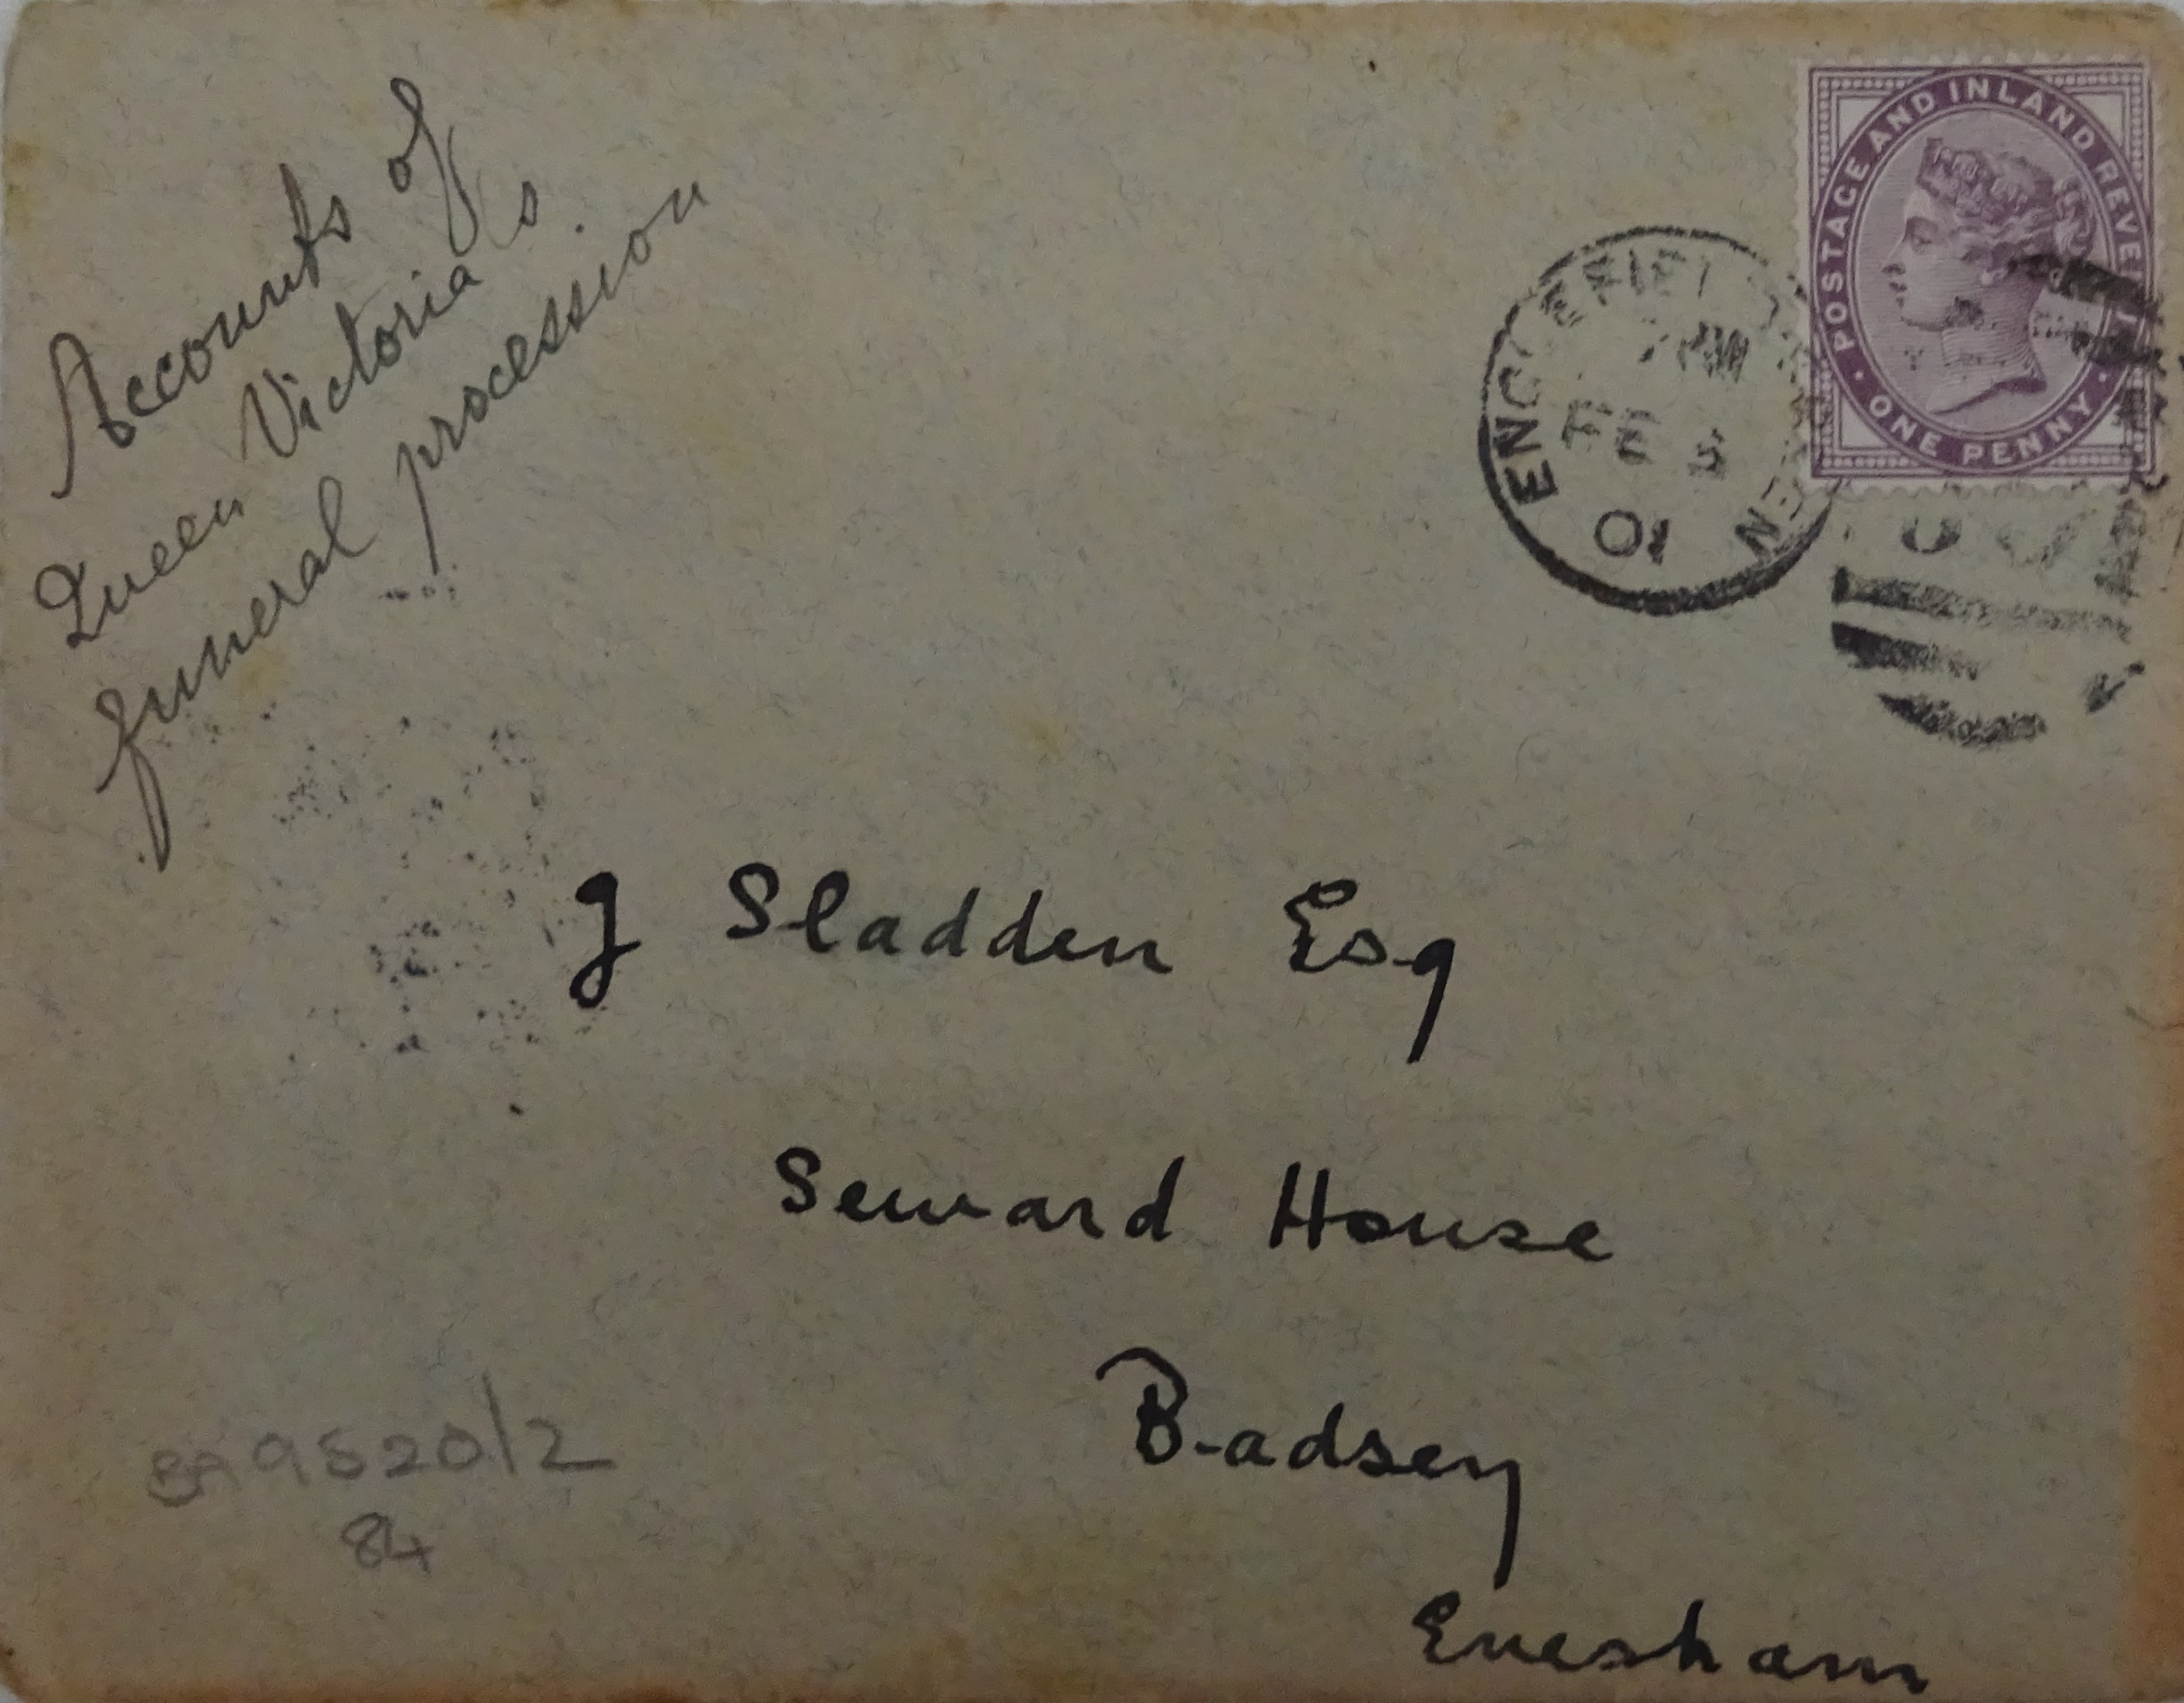 Accounts of
Queen Victoria's
funeral procession
POSTAGE AND INLAND REVENUE
ONE PENNY
FE 5
01
J Sladden Esq
Seward House
Badsey
Evesham
BA 9520/2
84